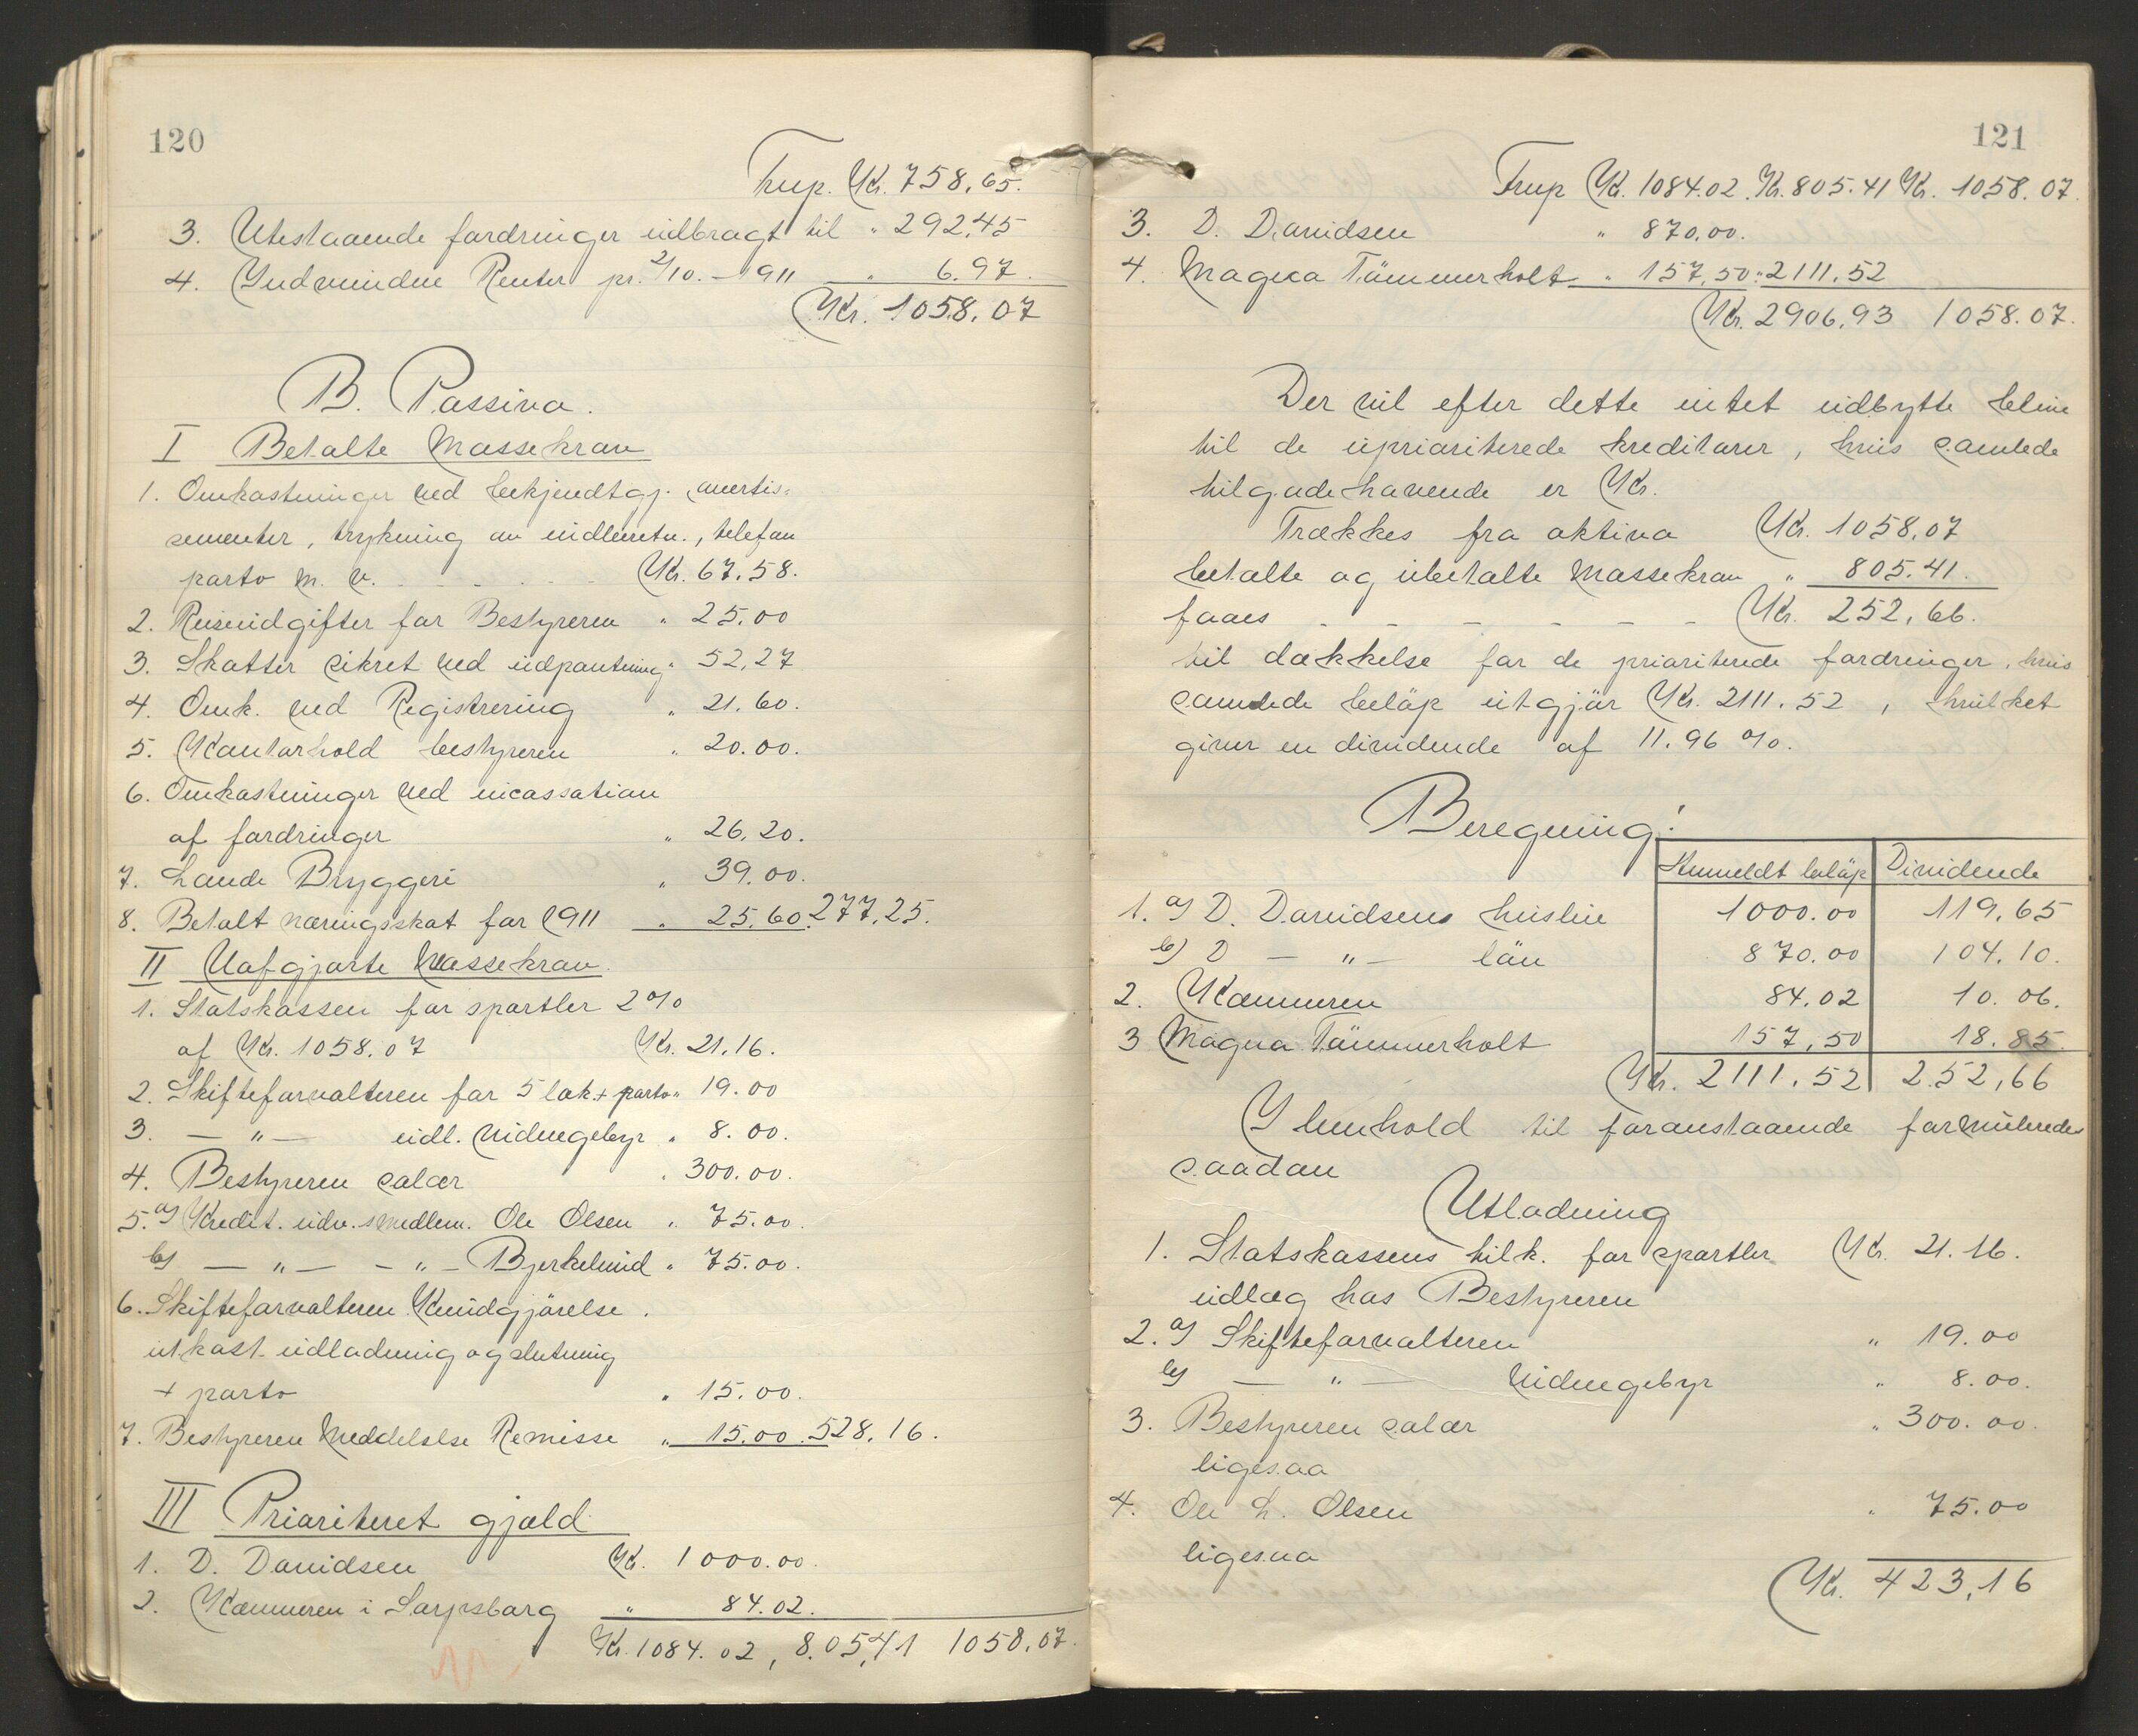 120
Trup. Kr. 758,65.
3. Utestaaende fordringer indbragt til " 292,45
4. Indvundne Renter pr. 2/10. - 1911 " 6.97.
Kr. 1058,07
B. Passiva.
I Betalte Massekrav
1. Omkostninger ved bekjendtgj. avertis-
sementer, trykning av indberetn., telefon
porto m. v. - - - - Kr. 67.58.
2. Reiseudgifter for Bestyreren " 25.00
3. Skatter sikret ved udpantning " 52,27
4. Omk. ved Registrering " 21.60.
5. Kontorhold bestyreren " 20.00.
6. Omkostninger ved incassation
af fordringer " 26.20.
7. Lande Bryggeri " 39.00.
8. Betalt næringsskat for 1911 " 25.60. 277.25.
II Uafgjorte Massekrav.
1. Statskassen for sportler 2 %
af Kr. 1058.07 Kr. 21.16.
2. Skifteforvalteren for 5 lok + porto " 19.00
3. — " — indl. Vidnegebyr " 8.00.
4. Bestyreren salær " 300.00.
5. a) Kredit. udv. smedlem. Ole Olsen " 75.00.
b) — " — - " - Bjerkelund " 75.00.
6. Skifteforvalteren Kundgjörelse.
utkast udlodning og slutning
+ porto " 15.00.
7. Bestyreren Meddelelse Remisse " 15.00. 528.16.
III Prioriteret gjæld
1. D. Davidsen Kr. 1000.00.
2. Kæmneren i Sarpsborg " 84.02.
Kr. 1084.02, 805,41 1058,07.
121
Trup Kr. 1084.02. Kr. 805.41 Kr. 1058.07.
3. D. Davidsen " 870.00.
4. Magna Tömmerholt " 157,50 " 2111.52
Kr. 2906,93 1058.07.
Der vil efter dette intet udbytte blive
til de upriariterede kreditorer, hvis samlede
tilgodehavende er Kr.
Trækkes fra aktiva Kr. 1058,07
betalte og ubetalte Massekrav " 805.41.
faaes - - - - - - Kr. 252,66.
til dækkelse for de prioriterede fordringer, hvis
samlede beløp utgjör Kr. 2111.52, hvilket
giver en dividende af 11.96 %.
Beregning:
Anmeldt beløp Dividende
1. a) D. Davidsens husleie 1000.00 119,65
b) D — " — lön 870.00 104.10.
2. Kæmneren 84.02 10.06.
3 Magna Tömmerholt 157,50 18.85.
Kr. 2111.52 252,66
I henhold til foranstaaende formuleredes
saadan
Utlodning
1. Statskassens tilk. for sportler Kr. 21.16.
udlæg hos Bestyreren
2. a) Skifteforvalteren " 19.00
b) — " — Vidnegebyr " 8.00.
3. Bestyreren salær " 300.00.
ligesaa
4. Ole L. Olsen " 75.00
ligesaa
Kr. 423,16